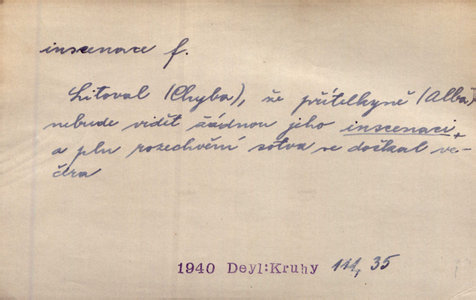 inscenace f.
Litoval (Chyba), že přítelkyně (Alba)
nebude vidět žádnou jeho inscenaci,
a pln rozechvění sotva se dočkal ve-
čera
1940 Deyl:Kruhy 111, 35